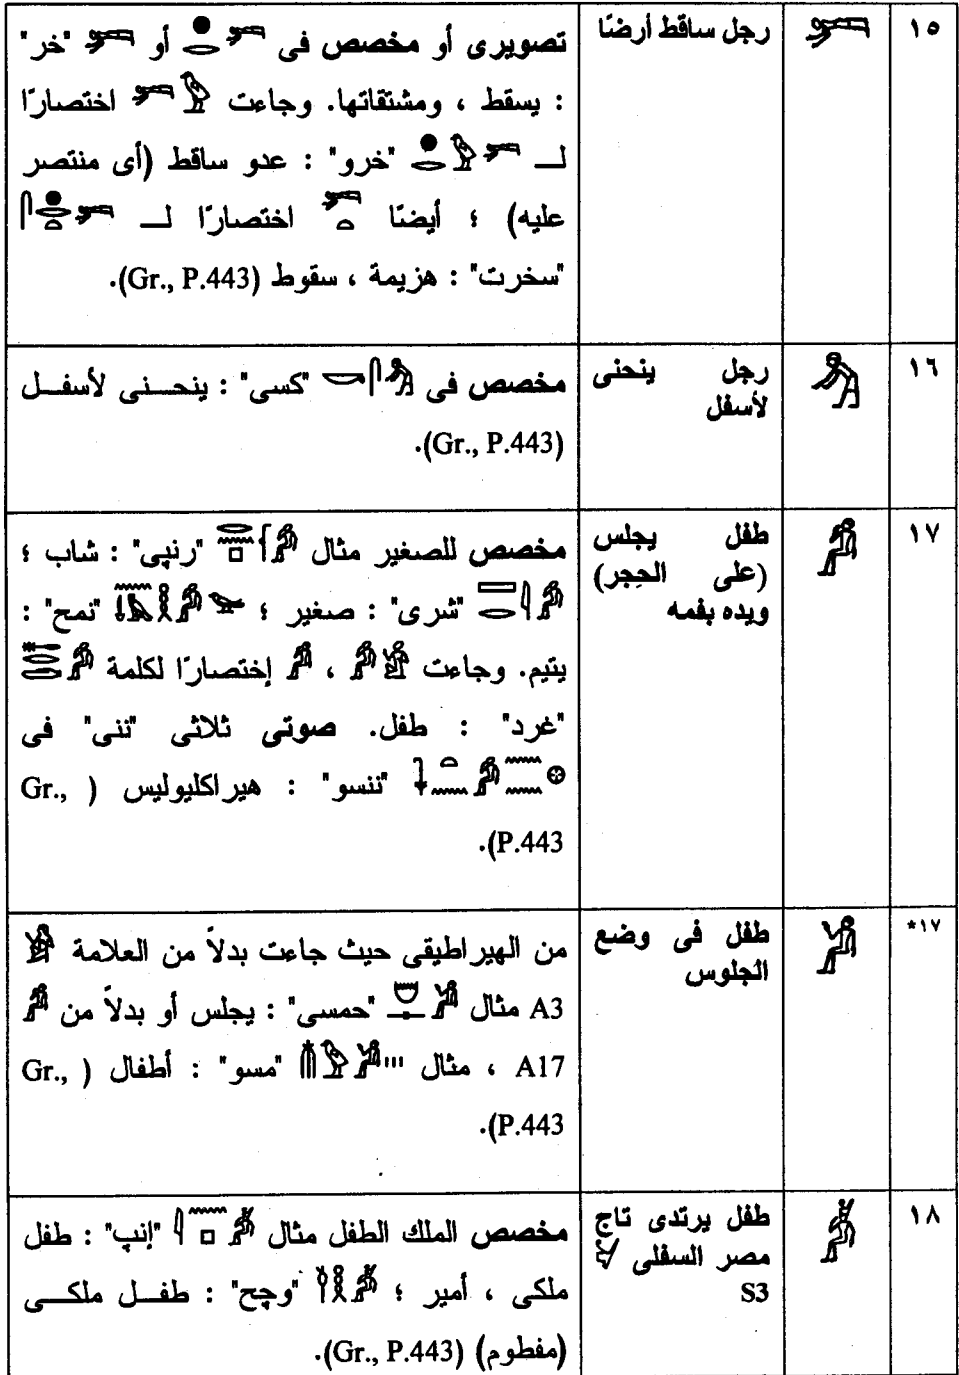 ١٥
رجل ساقط أرضًا
تصويرى أو مخصص فى أو "خر"
: يسقط ، ومشتقاتها. وجاءت اختصارًا
لـ "خرو" : عدو ساقط (أى منتصر
عليه) ؛ أيضًا اختصارًا لـ
"سخرت" : هزيمة ، سقوط (Gr., P.443).
١٦
رجل ينحنى
لأسفل
مخصص فى "كسى" : ينحنى لأسفل
(Gr., P.443).
١٧
طفل يجلس
(على الحِجر)
ويده بفمه
مخصص للصغير مثال "رنپى" : شاب ؛
"شرى" : صغير ؛ "نمح" :
يتيم. وجاءت ، إختصارًا لكلمة
"غرد" : طفل. صوتى ثلاثى "ننى" فى
"ننسو" : هيراكليوليس (Gr.,
P.443).
١٧*
طفل فى وضع
الجلوس
من الهيراطيقى حيث جاءت بدلاً من العلامة
A3 مثال "حمسى" : يجلس أو بدلاً من
A17 ، مثال "مسو" : أطفال (Gr.,
P.443).
١٨
طفل يرتدى تاج
مصر السفلى
S3
مخصص الملك الطفل مثال "إنپ" : طفل
ملكى ، أمير ؛ "وچح" : طفل ملكى
(مفطوم) (Gr., P.443).